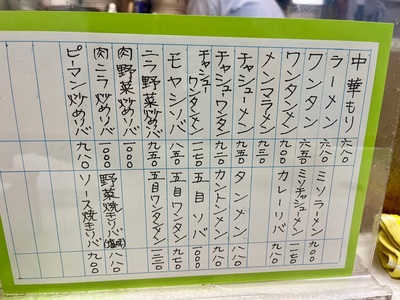 中華もり 六八〇
ラーメン 六八〇
ワンタン 六五〇
ワンタンメン 九〇〇
メンマラメン 九三〇
チャシューメン 九五〇
チャシューワンタン 九五〇
チャシューワンタンメン 一一七〇
モヤシソバ 八五〇
ニラ野菜炒めソバ 九五〇
肉野菜炒めソバ 一〇〇〇
肉ニラ炒めソバ 一〇〇〇
ピーマン炒めソバ 九八〇
ミソラーメン 九〇〇
ミソチャシューメン 一一七〇
カレーソバ 九八〇
タンメン 八八〇
カントンメン 九八〇
五目ソバ 一〇〇〇
五目ワンタン 九七〇
五目ワンタンメン 一二三〇
野菜焼きソバ(塩味) 八八〇
ソース焼きソバ 九〇〇